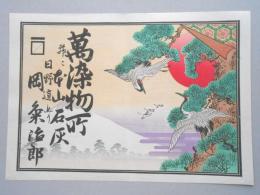 萬染物所
本山石灰
日野道上り
岡粂治郎